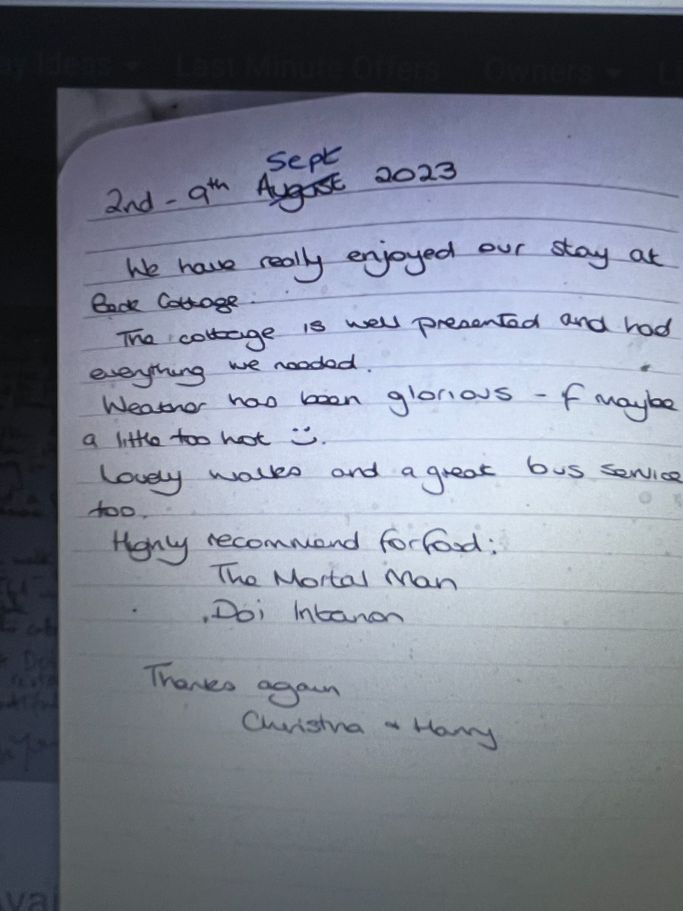 ay Ideas Last Minute Offers Owners Li
Sept
2nd - 9th August 2023
We have really enjoyed our stay at
Beck Cottage.
The cottage is well presented and had
everything we needed.
Weather has been glorious - f maybe
a little too hot :).
Lovely walks and a great bus service
too.
Highly recommend for food:
The Mortal Man
Doi Intanon
Thanks again
Christina & Harry
Avai